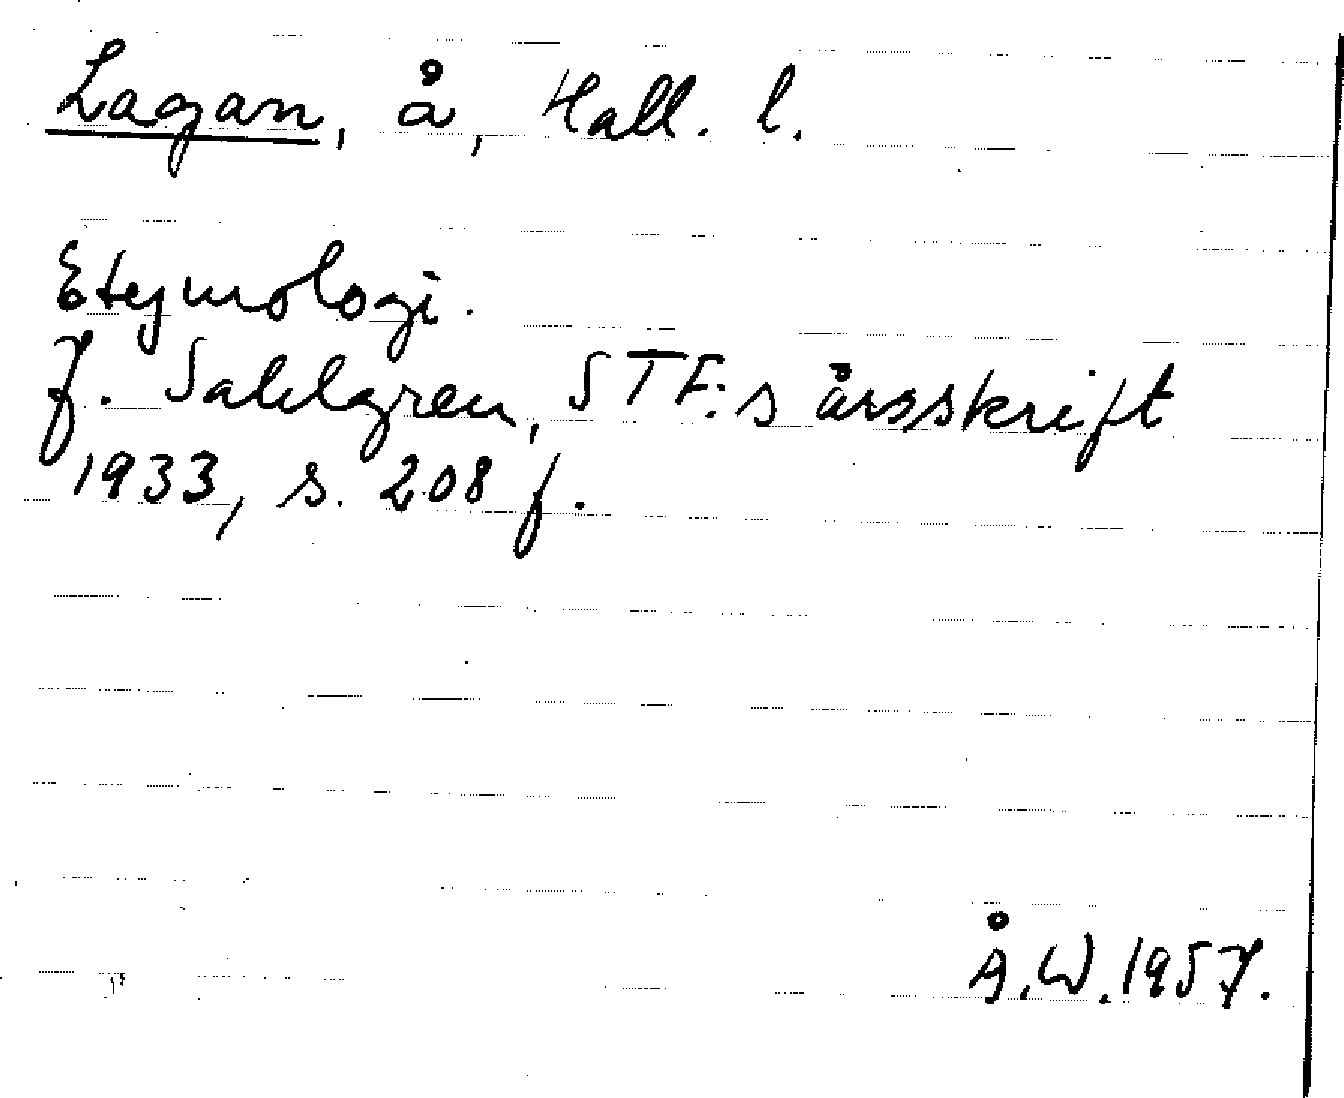 Lagan, å, Hall. l.
Etymologi.
J. Sahlgren, STF:s årsskrift
1933, s. 208 f.
Å.W.1957.